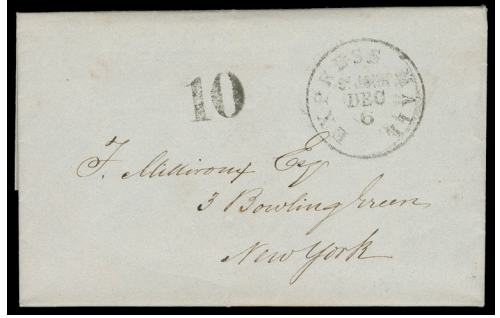 10
EXPRESS MAIL
ST. JOHN
DEC
6
F. Milliroux Esq
3 Bowling Green
New York